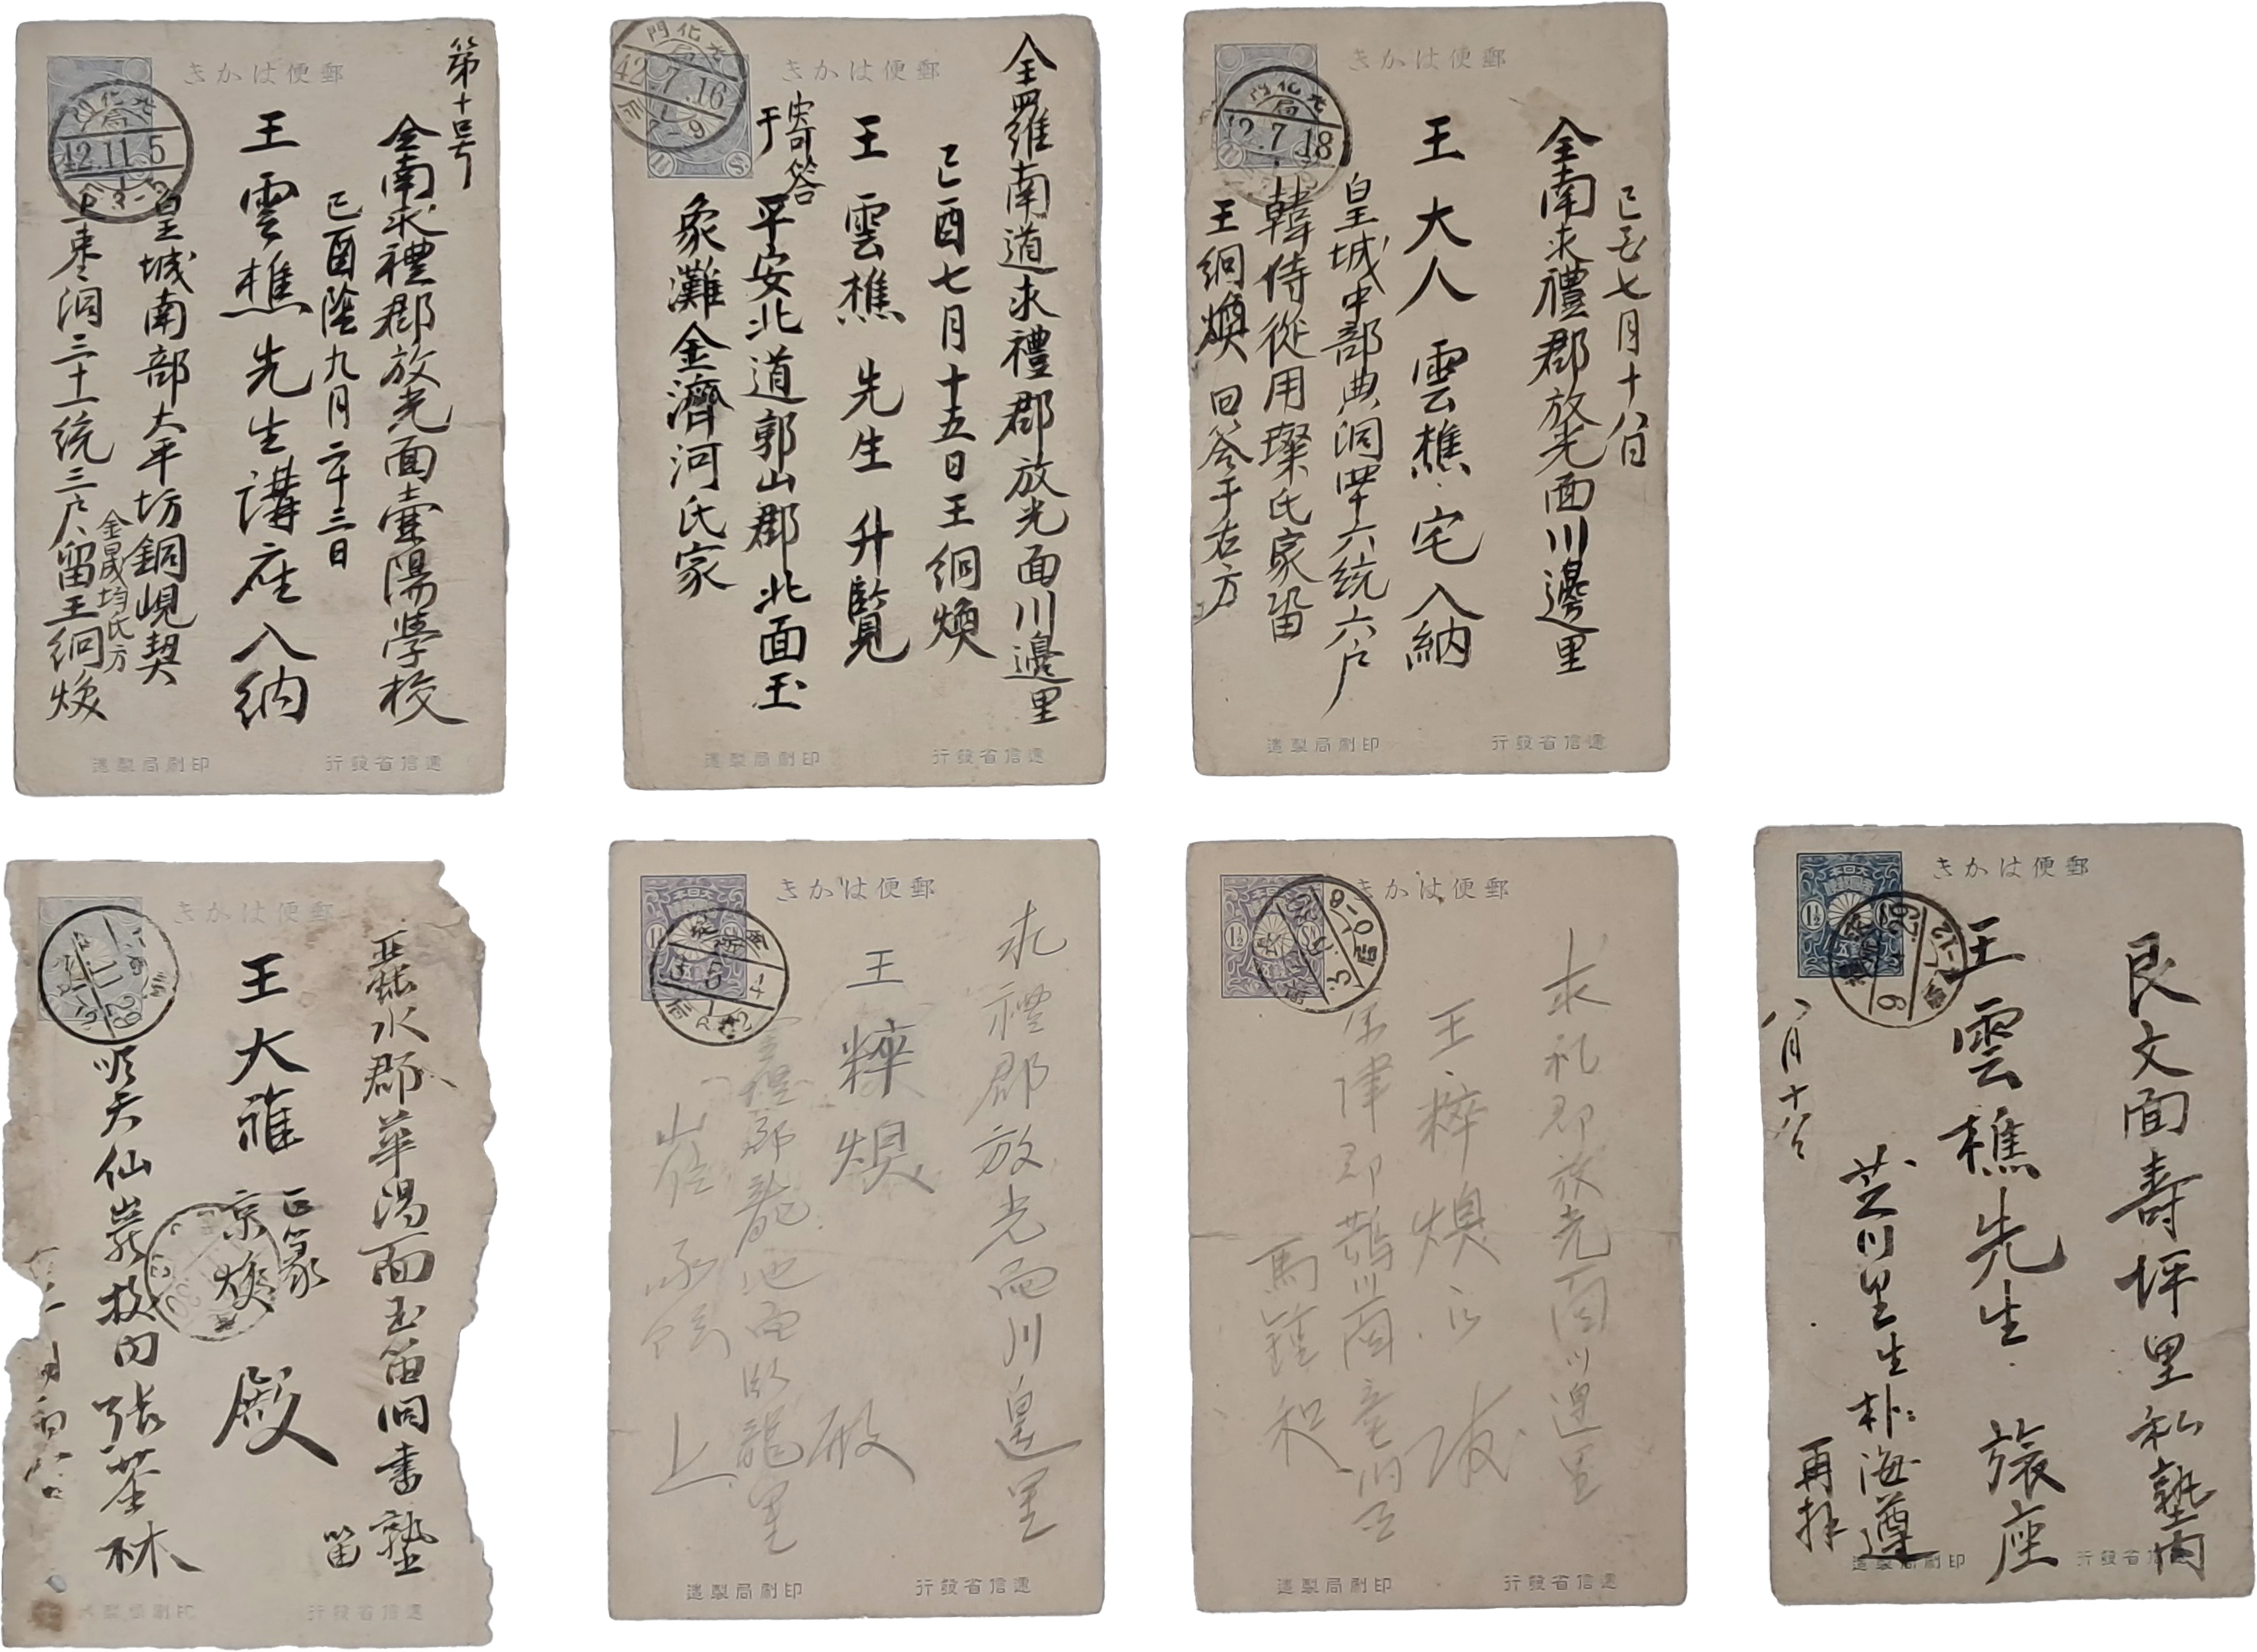 郵便はかき
第十号
全南求禮郡放光面壷陽學校
己酉陰九月二十三日
王雲樵先生講座入納
皇城南部大平坊銅峴契
上棗洞三十一統三戶留王綗煥
金晟均氏方
光化門局
42.11.5
逓信省發行
印刷局製造
郵便はかき
全羅南道求禮郡放光面川邊里
己酉七月十五日王綗煥
王雲樵先生升覽
寄答于
平安北道郭山郡北面玉
象灘金濟河氏家
光化門局
42.7.16
逓信省發行
印刷局製造
郵便はかき
己酉七月十八日
全南求禮郡放光面川邊里
王大人雲樵宅入納
皇城中部典洞四十六統六戶
韓侍從用璨氏家留
王綗煥 回答于右方
光化門局
2.7.18
逓信省發行
印刷局製造
郵便はかき
蠶水郡華陽面玉笛洞書塾
留
王大雅京煥殿
正篆
順天仙巖校內張茶林
逓信省發行
印刷局製
郵便はかき
求禮郡放光面川邊里
王粹煥殿
求禮郡龍池面臥龍里
上
逓信省發行
印刷局製造
郵便はかき
求礼郡放光面川邊里
王粹煥
馬鍾和
逓信省發行
印刷局製造
郵便はかき
艮文面壽坪里私塾內
王雲樵先生 旅座
芝川里生朴海遵
再拜
八月十八日
逓信省發行
印刷局製造